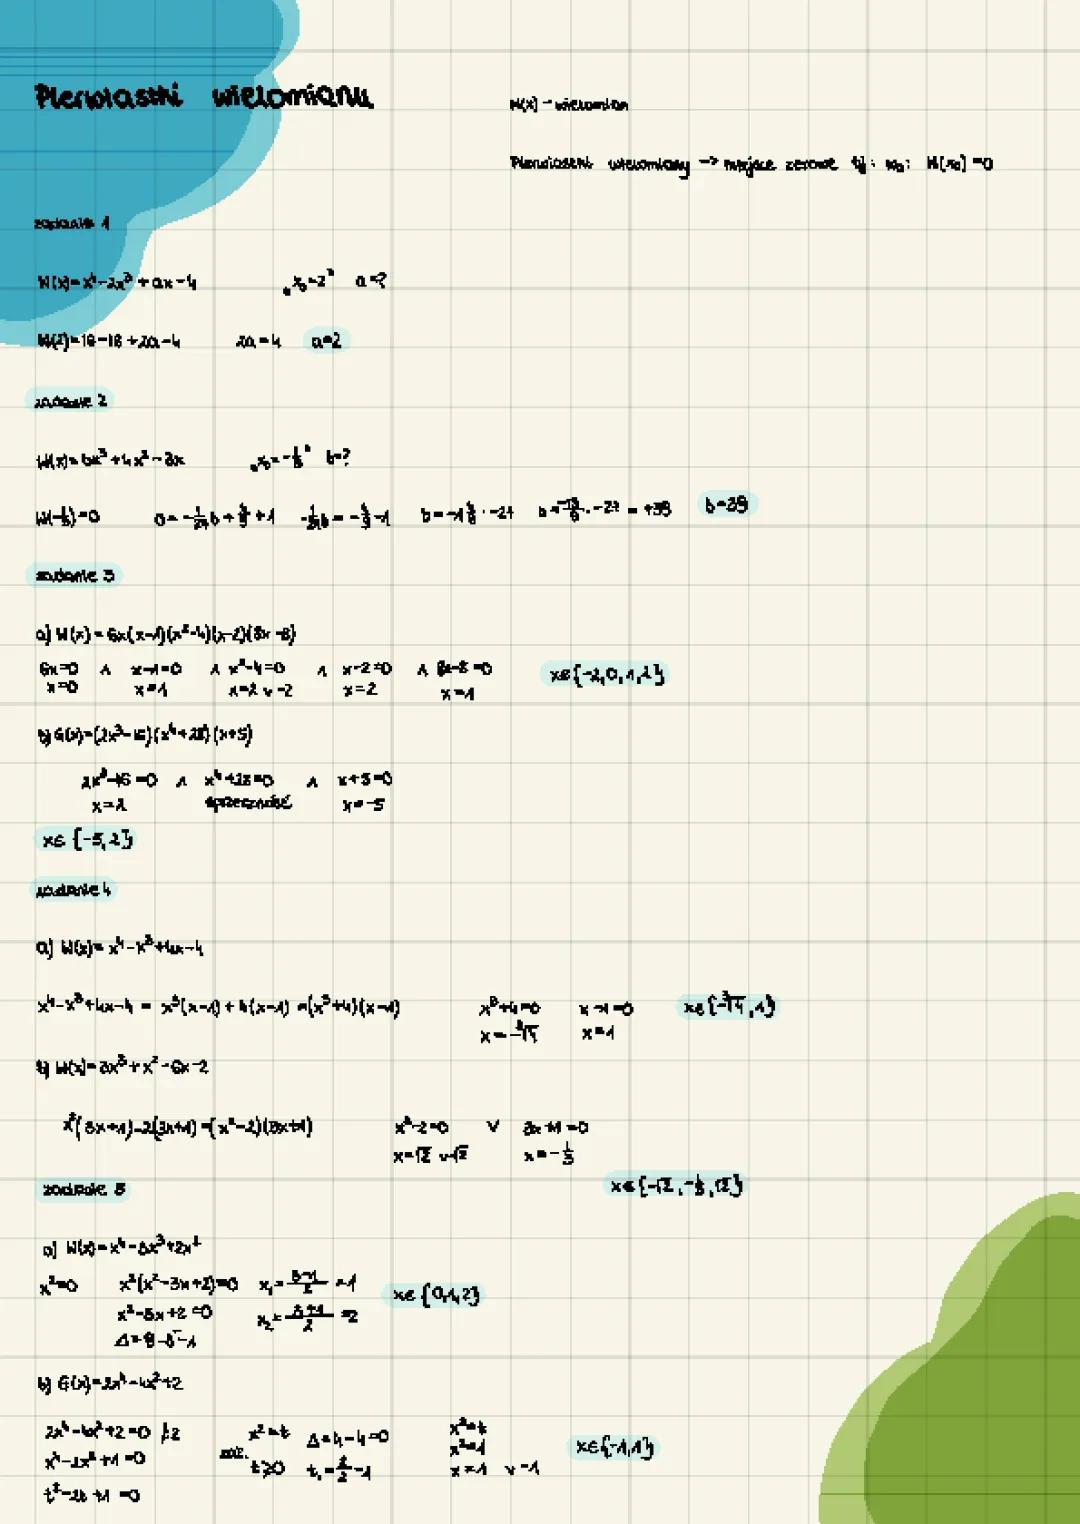 Pierwiastki wielomianu
W(x) - wielomian
Pierwiastki wielomiany -> miejsce zerowe tj: x₀: W(x₀)=0
zadanie 1
W(x)=x⁴-2x³+ax-4 „x₀=2” a=?
W(2)=16-16+2a-4 2a=4 a=2
zadanie 2
W(x)=bx³+4x²-3x „x₀=-1/3” b=?
W(-1/3)=0 0=-1/27b+4/9+1 b=39
zadanie 3
a) W(x)=6x(x-1)(x²-4)(x-2)(8x-8)
6x=0 ∧ x-1=0 ∧ x²-4=0 ∧ x-2=0 ∧ 8x-8=0
x=0 x=1 x=2 v -2 x=2 x=1
x∈{-2,0,1,2}
b) G(x)=(2x³-16)(x⁴+28)(x+5)
2x³-16=0 ∧ x⁴+28=0 ∧ x+5=0
x=2 sprzeczność x=-5
x∈{-5,2}
zadanie 4
a) W(x)=x⁴-x³+4x-4
x⁴-x³+4x-4 = x³(x-1)+4(x-1) =(x³+4)(x-1) x³+4=0 x-1=0 x∈{-³√4,1}
x=-³√4 x=1
b) W(x)=3x³+x²-6x-2
x²(3x+1)-2(3x+1)=(x²-2)(3x+1) x²-2=0 v 3x+1=0
x=√2 v-√2 x=-1/3
x∈{-√2,-1/3,√2}
zadanie 5
a) W(x)=x⁴-3x³+2x²
x²=0 x²(x²-3x+2)=0 x₁=3-1/2=1 x∈{0,1,2}
x²-3x+2=0 x₂=3+1/2=2
Δ=9-8=1
b) G(x)=2x⁴-4x²+2
2x⁴-4x²+2=0 |:2 x²=t Δ=4-4=0 x²=t
x⁴-2x²+1=0 zał. t≥0 t₁=2/2=1 x²=1 x∈{-1,1}
t²-2t+1=0 x=1 v -1